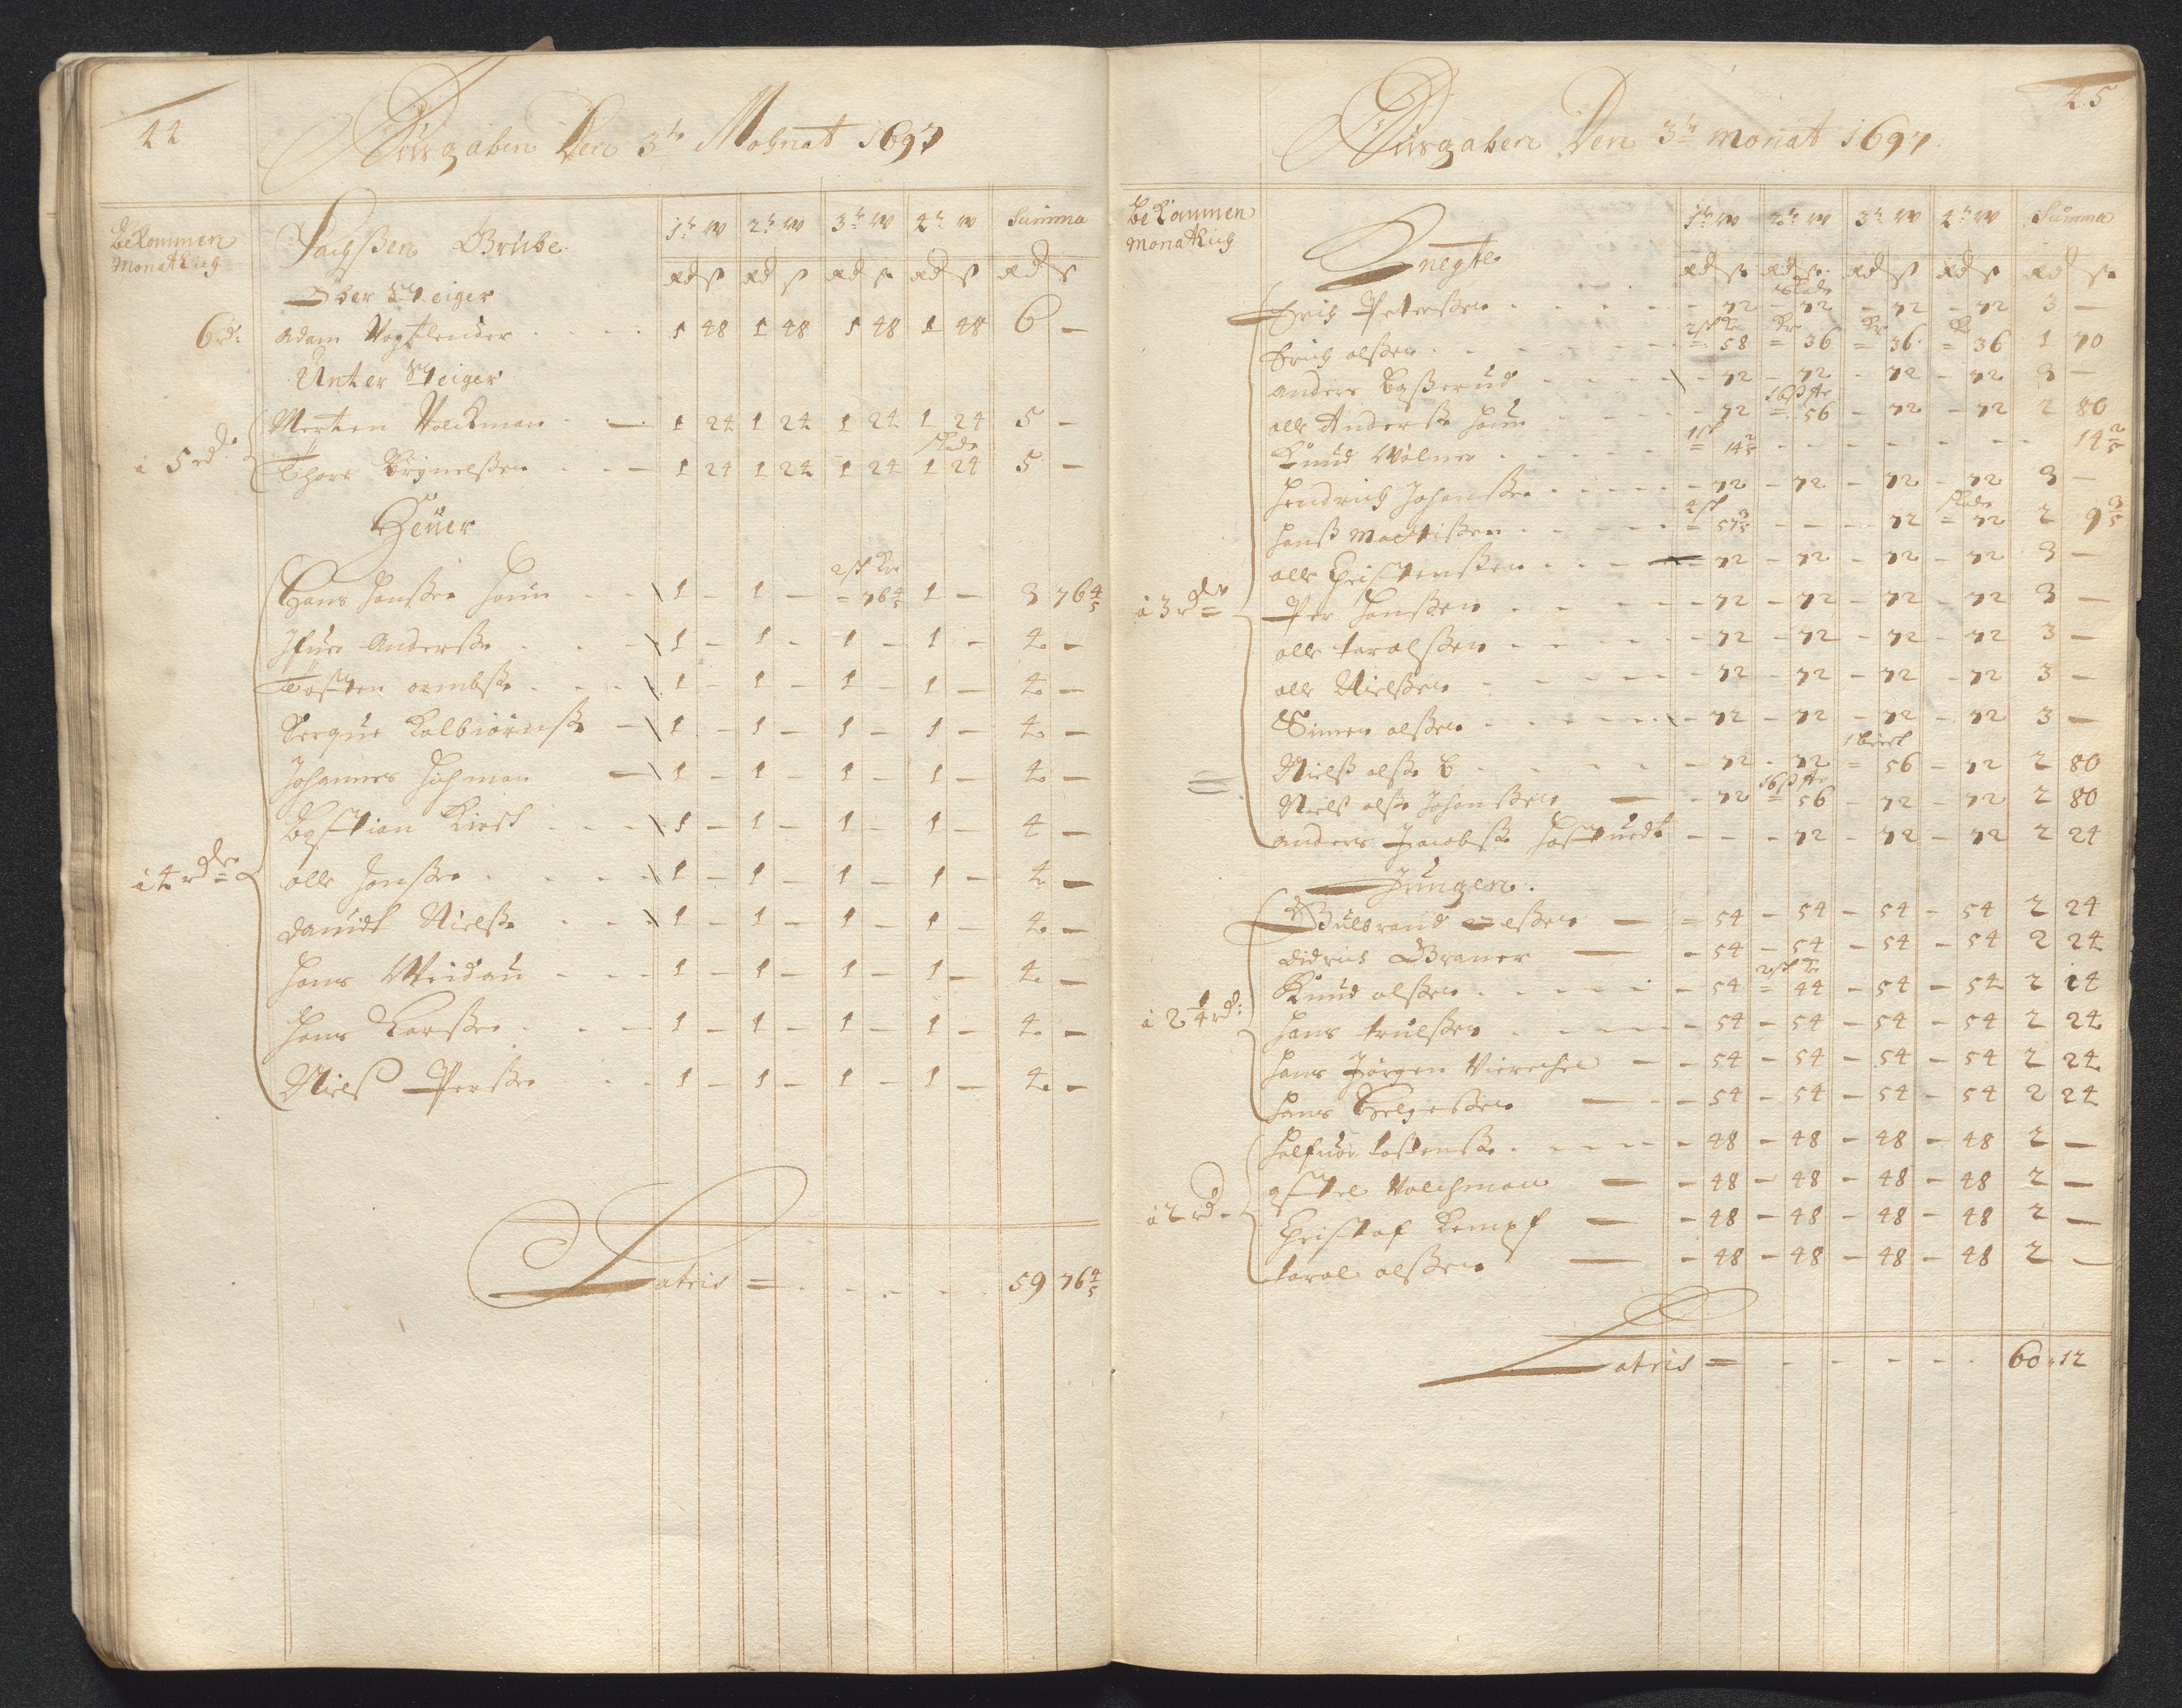 44
Ausgaben Den 3ts Mohnat 1697
Bekommen Monatlich
Sachsen Grube
1ts W 2ts W 3ts W 4ts W Summa
Rd s Rd s Rd s Rd s Rd s
Ober Steiger
6 rd: Adam Vogtlender 1 48 1 48 1 48 1 48 6 –
Unter Steiger
Merten Volckman 1 24 1 24 1 24 1 24 5 –
à 5 rd: Thore Brynelsen 1 24 1 24 1 24 1 24 5 –
Heuer
Hans Hansen 1 – 1 – = 76 4/5 1 – 3 76 4/5
Ifuer Andersen 1 – 1 – 1 – 1 – 4 –
Tosten 1 – 1 – 1 – 1 – 4 –
Kolbiörns 1 – 1 – 1 – 1 – 4 –
Johannes Hofman 1 – 1 – 1 – 1 – 4 –
Bastian 1 – 1 – 1 – 1 – 4 –
à 4 rdr Olle Hansen 1 – 1 – 1 – 1 – 4 –
Dauidt Nielsen 1 – 1 – 1 – 1 – 4 –
Hans Weidau 1 – 1 – 1 – 1 – 4 –
Hans Larsen 1 – 1 – 1 – 1 – 4 –
Niels Persen 1 – 1 – 1 – 1 – 4 –
Latris = 59 76 4/5
45
Ausgaben Den 3ts Monat 1697
Bekommen Monatlich
1ts W 2ts W 3ts W 4ts W Summa
Knegte
Rd s Rd s Rd s Rd s Rd s
Erich Petersen – 72 – 72 – 72 – 72 3 –
Erich Olsen = 58 = 36 = 36 = 36 1 70
Anders – 72 – 72 – 72 – 72 3 –
Olle Anders – 72 = 56 – 72 – 72 2 80
Knud Wolner = 14 2/5 – – – 14 2/5
Hendrich Johansen – 72 – 72 – 72 – 72 3 –
Hans = 57 3/5 – – – 72 = 72 2 9 3/5
Olle Christensen – 72 – 72 – 72 – 72 3 –
à 3 rdr Per Hansen – 72 – 72 – 72 – 72 3 –
Olle Taralsen – 72 – 72 – 72 – 72 3 –
Olle Nielsen – 72 – 72 – 72 – 72 3 –
Simen Olsen – 72 – 72 – 72 – 72 3 –
Niels Olsen – 72 – 72 = 56 – 72 2 80
Niels Olsen Johansen – 72 = 56 – 72 – 72 2 80
Anders Jacobsen – – – 72 – 72 – 72 2 24
Jungen
Gulbrand Olsen – 54 – 54 – 54 – 54 2 24
Didrich Braner – 54 – 54 – 54 – 54 2 24
Knud Olsen – 54 = 44 – 54 – 54 2 14
à 2 1/4 rd: Hans Trulsen – 54 – 54 – 54 – 54 2 24
Hans Jörgen – 54 – 54 – 54 – 54 2 24
Hans Helgesen – 54 – 54 – 54 – 54 2 24
Halfuor Tostensen – 48 – 48 – 48 – 48 2 –
à 2 rd – Volchman – 48 – 48 – 48 – 48 2 –
Christof Kempf – 48 – 48 – 48 – 48 2 –
Taral Olsen – 48 – 48 – 48 – 48 2 –
Latris = 60 12